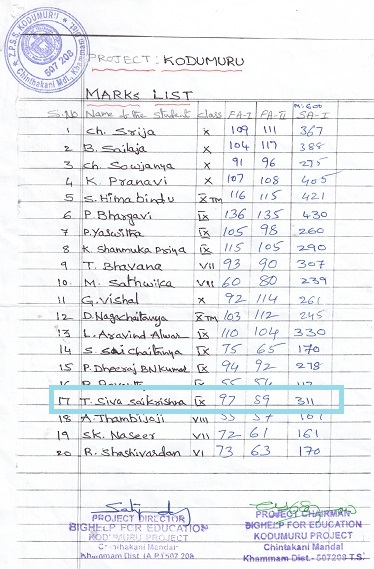 Z.P.S.S. KODUMURU
Chinthakani Mdl. Khammam
507 208
PROJECT : KODUMURU
MARKS LIST
M:600
S.No Name of the student class FA-I FA-II SA-I
1 Ch. Srija X 109 111 367
2 B. Sailaja X 104 117 388
3 Ch. Sowjanya X 91 96 275
4 K. Pranavi X 107 108 405
5 S. Himabindu X TM 116 115 421
6 P. Bhargavi IX 136 135 430
7 P. Yaswitha IX 105 98 260
8 K. Shanmuka Priya IX 115 105 290
9 T. Bhavana VII 93 90 307
10. M. Sathwika VIII 60 80 239
11 G. Vishal X 92 114 261
12 D. Nagachaitanya X TM 103 112 245
13 L. Aravind Alwar IX 110 104 330
14 S. Sai Chaitanya IX 75 65 170
15 P. Dheeraj B.N Kumar IX 94 92 278
16
17 T. Siva Saikrishna IX 97 89 311
18 A. Thambi VIII
19 SK. Naseer VII 72 61 161
20 R. Shashivardan VI 73 63 170
PROJECT DIRECTOR
BIGHELP FOR EDUCATION
KODUMURU PROJECT
Chintakani Mandal
Khammam Dist. (A.P.) 507 208
PROJECT CHAIRMAN
BIGHELP FOR EDUCATION
KODUMURU PROJECT
Chintakani Mandal
Khammam Dist.- 507208 T.S.